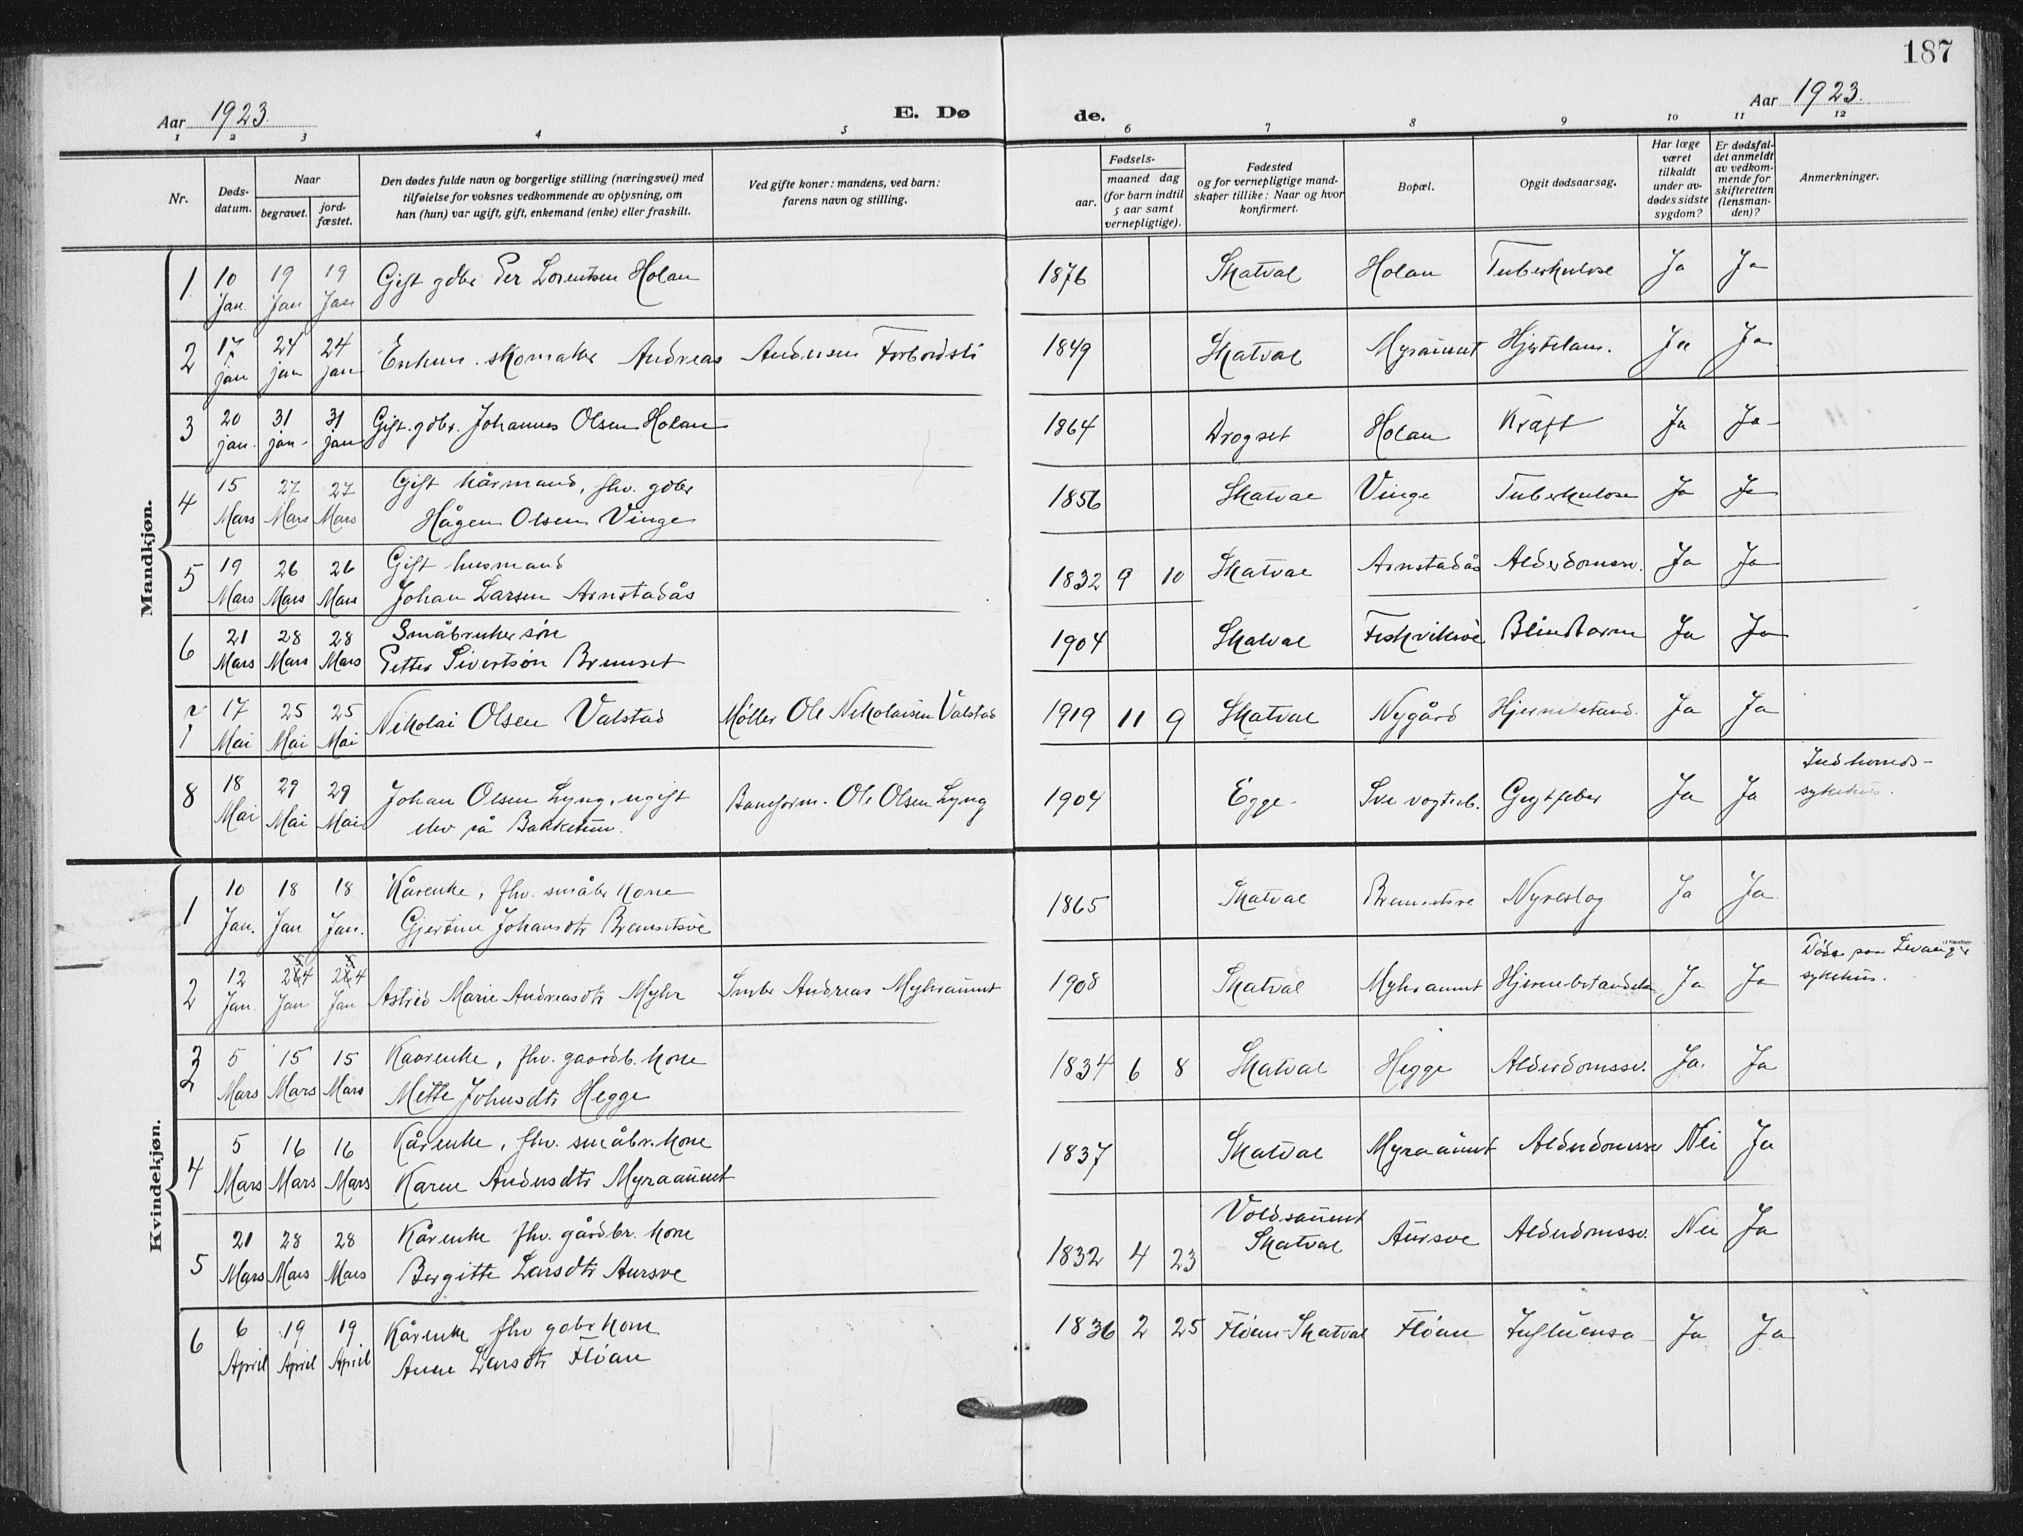 187
Aar 1923. E. Dø de. Aar 1923.
1 2 3 4 5 6 7 8 9 10 11 12
Nr.
Døds-
datum.
Naar
begravet.
jord-
fæstet.
Den dødes fulde navn og borgerlige stilling (næringsvei) med
tilføielse for voksnes vedkommende av oplysning, om
han (hun) var ugift, gift, enkemand (enke) eller fraskilt.
Ved gifte koner: mandens, ved barn:
farens navn og stilling.
Fødsels-
aar.
maaned dag
(for barn indtil
5 aar samt
vernepligtige).
Fødested
og for vernepligtige mand-
skaper tillike: Naar og hvor
konfirmert.
Bopæl.
Opgit dødsaarsag.
Har læge
været
tilkaldt
under av-
dødes sidste
sygdom?
Er dødsfal-
det anmeldt
av vedkom-
mende for
skifteretten
(lensman-
den)?
Anmerkninger.
Mandkjøn.
1 10 Jan. 19 Jan 19 Jan Gift gdbr Per Lorentsen Holan 1876 Skatval Holan Tuberkulose Ja Ja
2 17 jan 24 jan 24 jan Enkem. skomaker Andreas Andersen Forbordsli 1849 Skatval Myraunet Hjertelam. Ja Ja
3 20 jan. 31 jan. 31 jan Gift. gdbr. Johannes Olsen Holan 1864 Drogset Holan Kræft Ja Ja
4 15 Mars 27 Mars 27 Mars Gift kårmand, fhv. gdbr
Hågen Olsen Vinge 1856 Skatval Vinge Tuberkulose Ja Ja
5 19 Mars 26 Mars 26 Mars Gift husmand
Johan Larsen Arnstadås 1832 9 10 Skatval Arnstadås Alderdomssv. Ja Ja
6 21 Mars 28 Mars 28 Mars Småbruker søn
Petter Sivertsøn Bremset 1904 Skatval Fiskviksve Blindtarm Ja Ja
7 17 Mai 25 Mai 25 Mai Nikolai Olsen Valstad Møller Ole Nikolaisen Valstad 1919 11 9 Skatval Nygård Hjernebetænd. Ja Ja
8 18 Mai 29 Mai 29 Mai Johan Olsen Lyng, ugift
elev på Bakketun. Baneform. Ole Olsen Lyng 1904 Egge Sve vogterb. Gigtfeber Ja Ja Indhereds-
sykehus.
Kvindekjøn.
1 10 Jan. 18 Jan 18 Jan. Kårenke, fhv. småbr kone
Gjertine Johansdtr Bremsetsve 1865 Skatval Bremsetsve Nyreslag Ja Ja.
2 12 Jan. 24 Jan 24 Jan Astrid Marie Andreasdtr Myhr Smbr Andreas Myhraunet 1908 Skatval Myhraunet Hjernebetændelse Ja Ja Døde paa Levanger
sykehus.
3 5 Mars 15 Mars 15 Mars Kaarenke, fhv. gaardb. kone
Mette Johnsdtr Hegge 1834 6 8 Skatval Hegge Alderdomssv. Ja. Ja
4 5 Mars 16 Mars 16 Mars Kårenke, fhv. småbr. kone
Karen Andersdtr Myraaunet 1837 Skatval Myraaunet Alderdomssv Nei Ja
5 21 Mars 28 Mars 28 Mars Kårenke fhv. gårdbr. kone
Bergitte Larsdtr Aursve 1832 4 23 Voldsaunet
Skatval Aursve Alderdomssv. Nei Ja
6 6 April 19 April 19 April Kårenke fhv gdbr kone
Anne Larsdtr Fløan 1836 2 25 Fløan Skatval Fløan Influensa Ja Ja